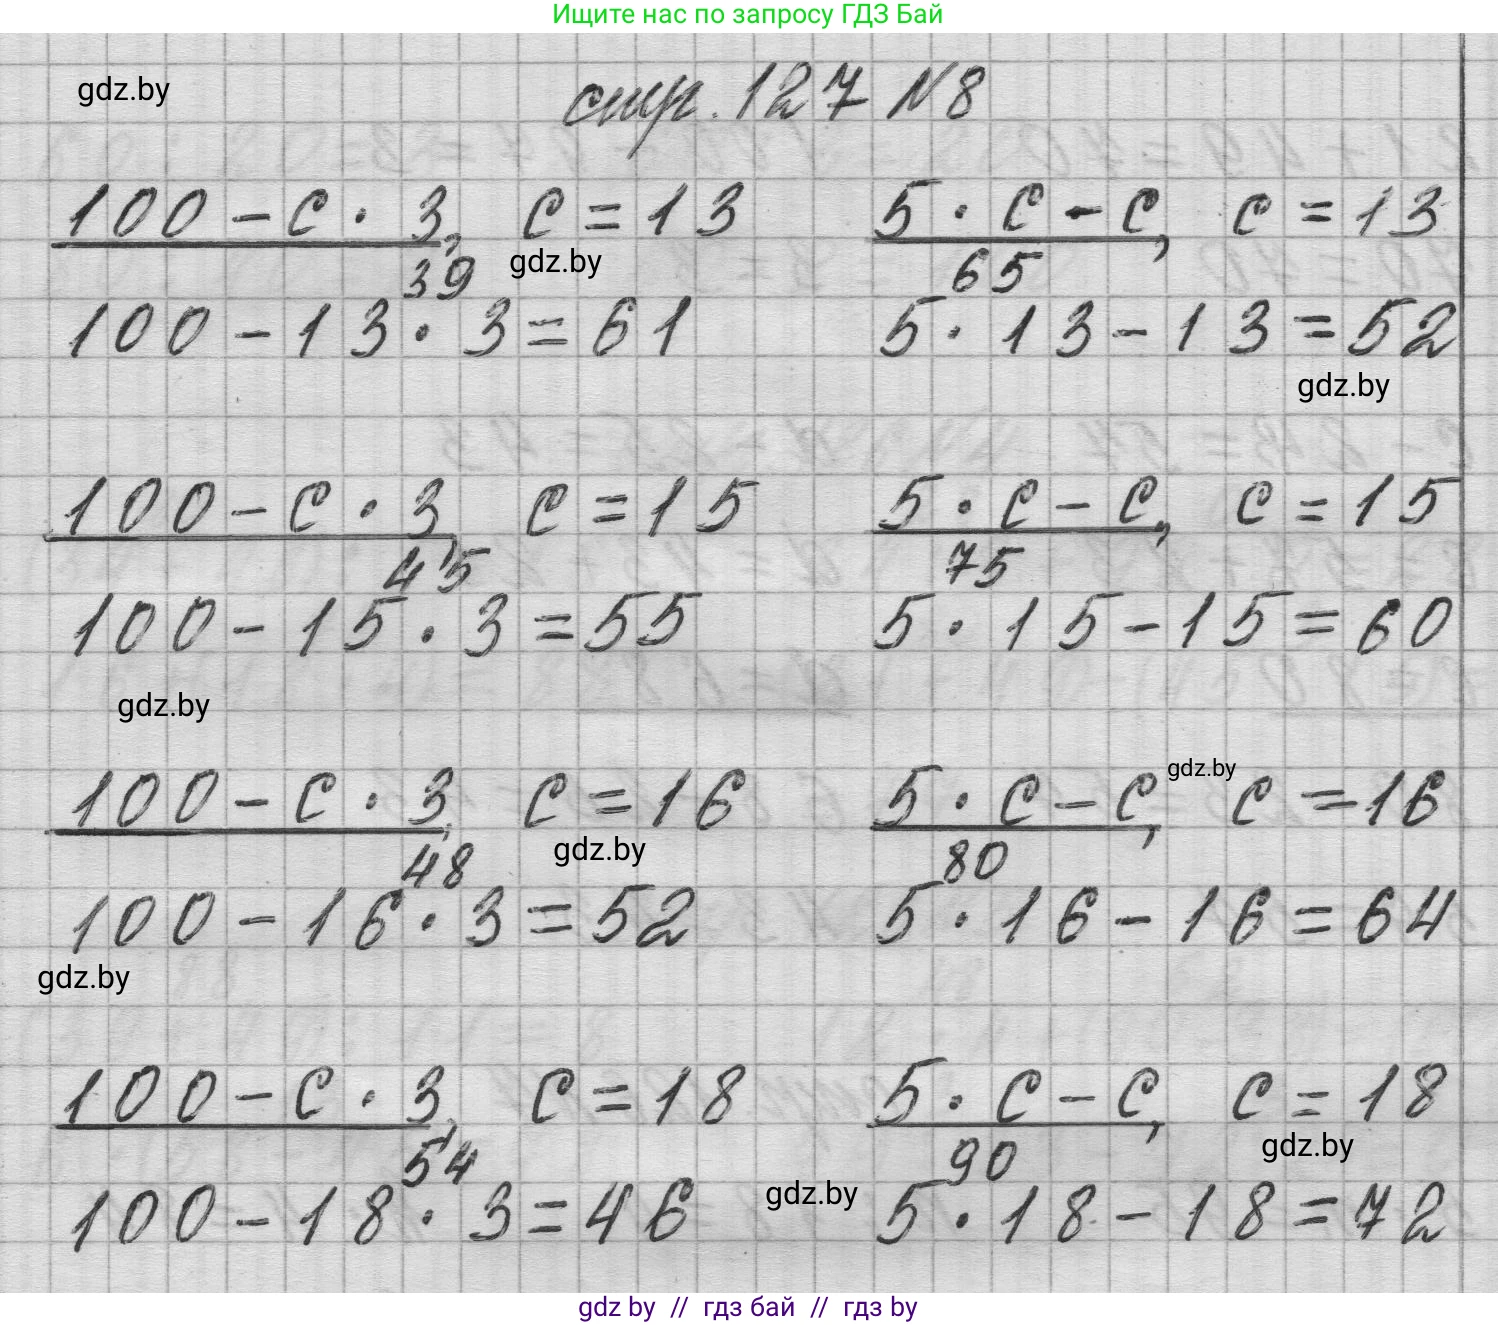 Ищите нас по запросу ГДЗ Бай
gdz.by
стр. 127 №8
100 - с · 3, с = 13 5 · с - с, с = 13
gdz.by
39 65
100 - 13 · 3 = 61 5 · 13 - 13 = 52
gdz.by
100 - с · 3, с = 15 5 · с - с, с = 15
45 75
100 - 15 · 3 = 55 5 · 15 - 15 = 60
gdz.by
gdz.by
100 - с · 3, с = 16 5 · с - с, с = 16
gdz.by
48 80
100 - 16 · 3 = 52 5 · 16 - 16 = 64
gdz.by
100 - с · 3, с = 18 5 · с - с, с = 18
gdz.by
54 90
gdz.by
100 - 18 · 3 = 46 5 · 18 - 18 = 72
gdz by // гдз бай // гдз by